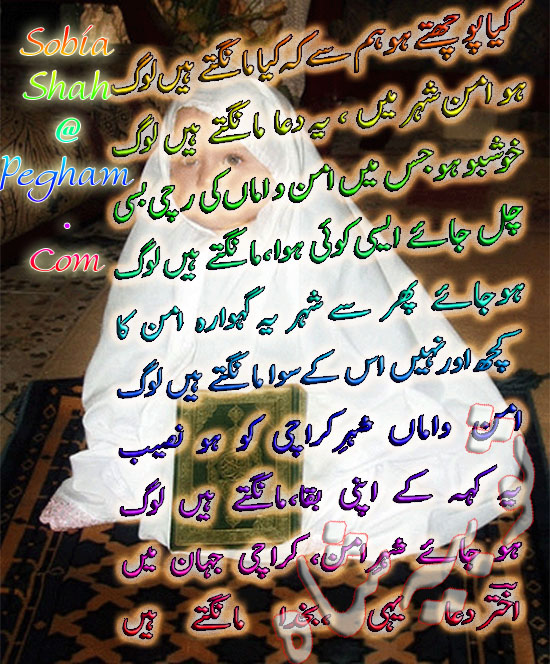 Sobia
Shah
@
Pegham
.
Com
کیا پوچھتے ہو ہم سے کہ کیا مانگتے ہیں لوگ
ہو امن شہر میں ، یہ دعا مانگتے ہیں لوگ
خوشبو ہو جس میں امن و اماں کی رچی بسی
چل جائے ایسی کوئی ہوا، مانگتے ہیں لوگ
ہو جائے پھر سے شہر یہ گہوارہ امن کا
کچھ اور نہیں اس کے سوا مانگتے ہیں لوگ
امن واماں شہرِ کراچی کو ہو نصیب
یہ کہہ کے اپنی بقا، مانگتے ہیں لوگ
ہو جائے شہرِ امن، کراچی جہان میں
اختر دعا یہی ، بخدا مانگتے ہیں